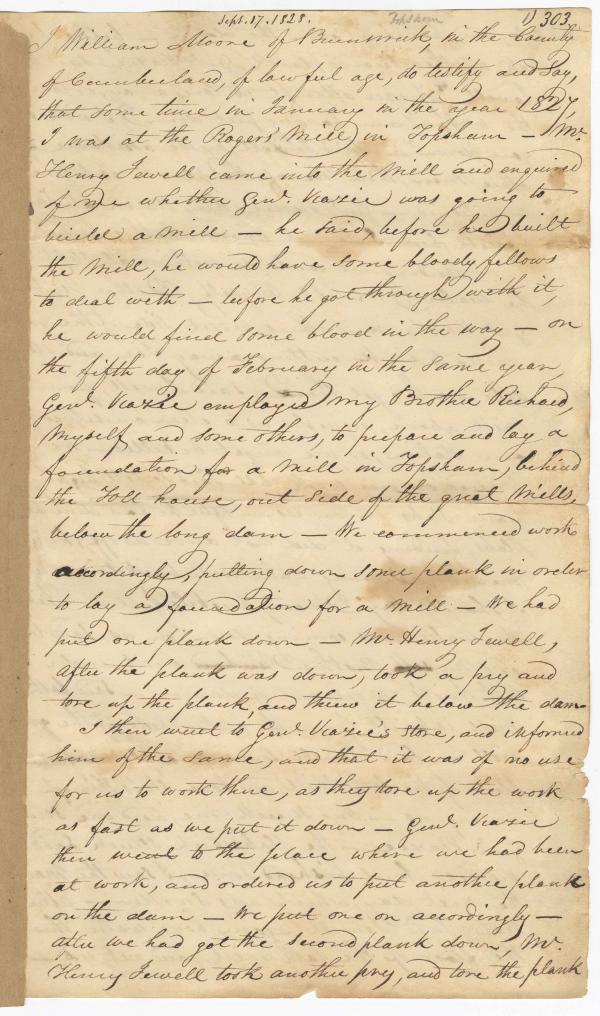 Sept. 17. 1828. Topsham 1) 303
I William Moore of Brunswick, in the County
of Cumberland, of lawful age, do testify and say,
that some time in January in the year 1827,
I was at the Rogers' Mill in Topsham — Mr.
Henry Jewell came into the Mill and enquired
of me whether Genl. Veazie was going to
build a mill — he said, before he built
the Mill, he would have some bloody fellows
to deal with — before he got through with it,
he would find some blood in the way — on
the fifth day of February in the same year,
Genl. Veazie employed my Brother Richard,
Myself, and some others, to prepare and lay a
foundation for a Mill in Topsham, behind
the Toll house, out side of the great Mills,
below the long dam — We commenced work
accordingly, putting down some plank in order
to lay a foundation for a Mill — We had
put one plank down — Mr. Henry Jewell,
after the plank was down, took a pry and
tore up the plank, and threw it below the dam
I then went to Genl. Veazie's store, and informed
him of the same, and that it was of no use
for us to work there, as they tore up the work
as fast as we put it down — Genl. Veazie
then went to the place where we had been
at work, and ordered us to put another plank
on the dam — We put one on accordingly —
after we had got the second plank down, Mr.
Henry Jewell took another pry, and tore the plank